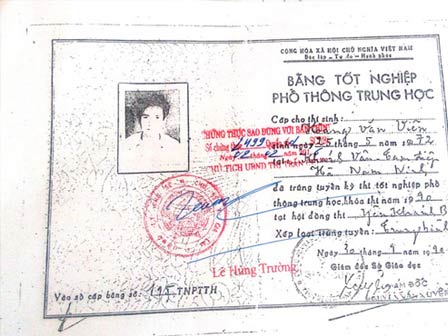 CỘNG HÒA XÃ HỘI CHỦ NGHĨA VIỆT NAM
Độc lập - Tự do - Hạnh phúc
BẰNG TỐT NGHIỆP
PHỔ THÔNG TRUNG HỌC
Cấp cho thí sinh:
Hoàng Văn Viên
sinh ngày 25 tháng 5 năm 1972
Hà Nam Ninh
CHỨNG THỰC SAO ĐÚNG VỚI BẢN CHÍNH
Số chứng
đã trúng tuyển kỳ thi tốt nghiệp phổ
thông trung học, khóa thi năm 1990
tại hội đồng thi Yên Khánh B
Xếp loại trúng tuyển:
Ngày 30 tháng
Giám đốc Sở Giáo dục
Lê Hùng Trường
Vào sổ cấp bằng số: 195 TNPTTH